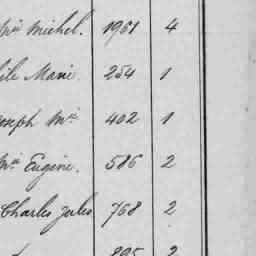 Mie Michel. 1961 4
Marie 254 1
Joseph Mie 402 1
Mie Eugène. 586 2
Charles Jules 768 2
895 2